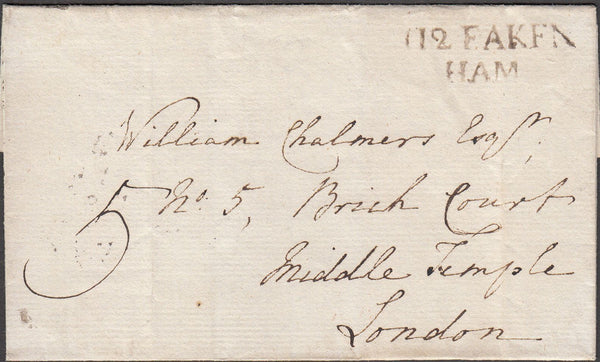 112 FAKEN
HAM
William Chalmers Esqr.
5 No. 5, Brick Court
Middle Temple
London